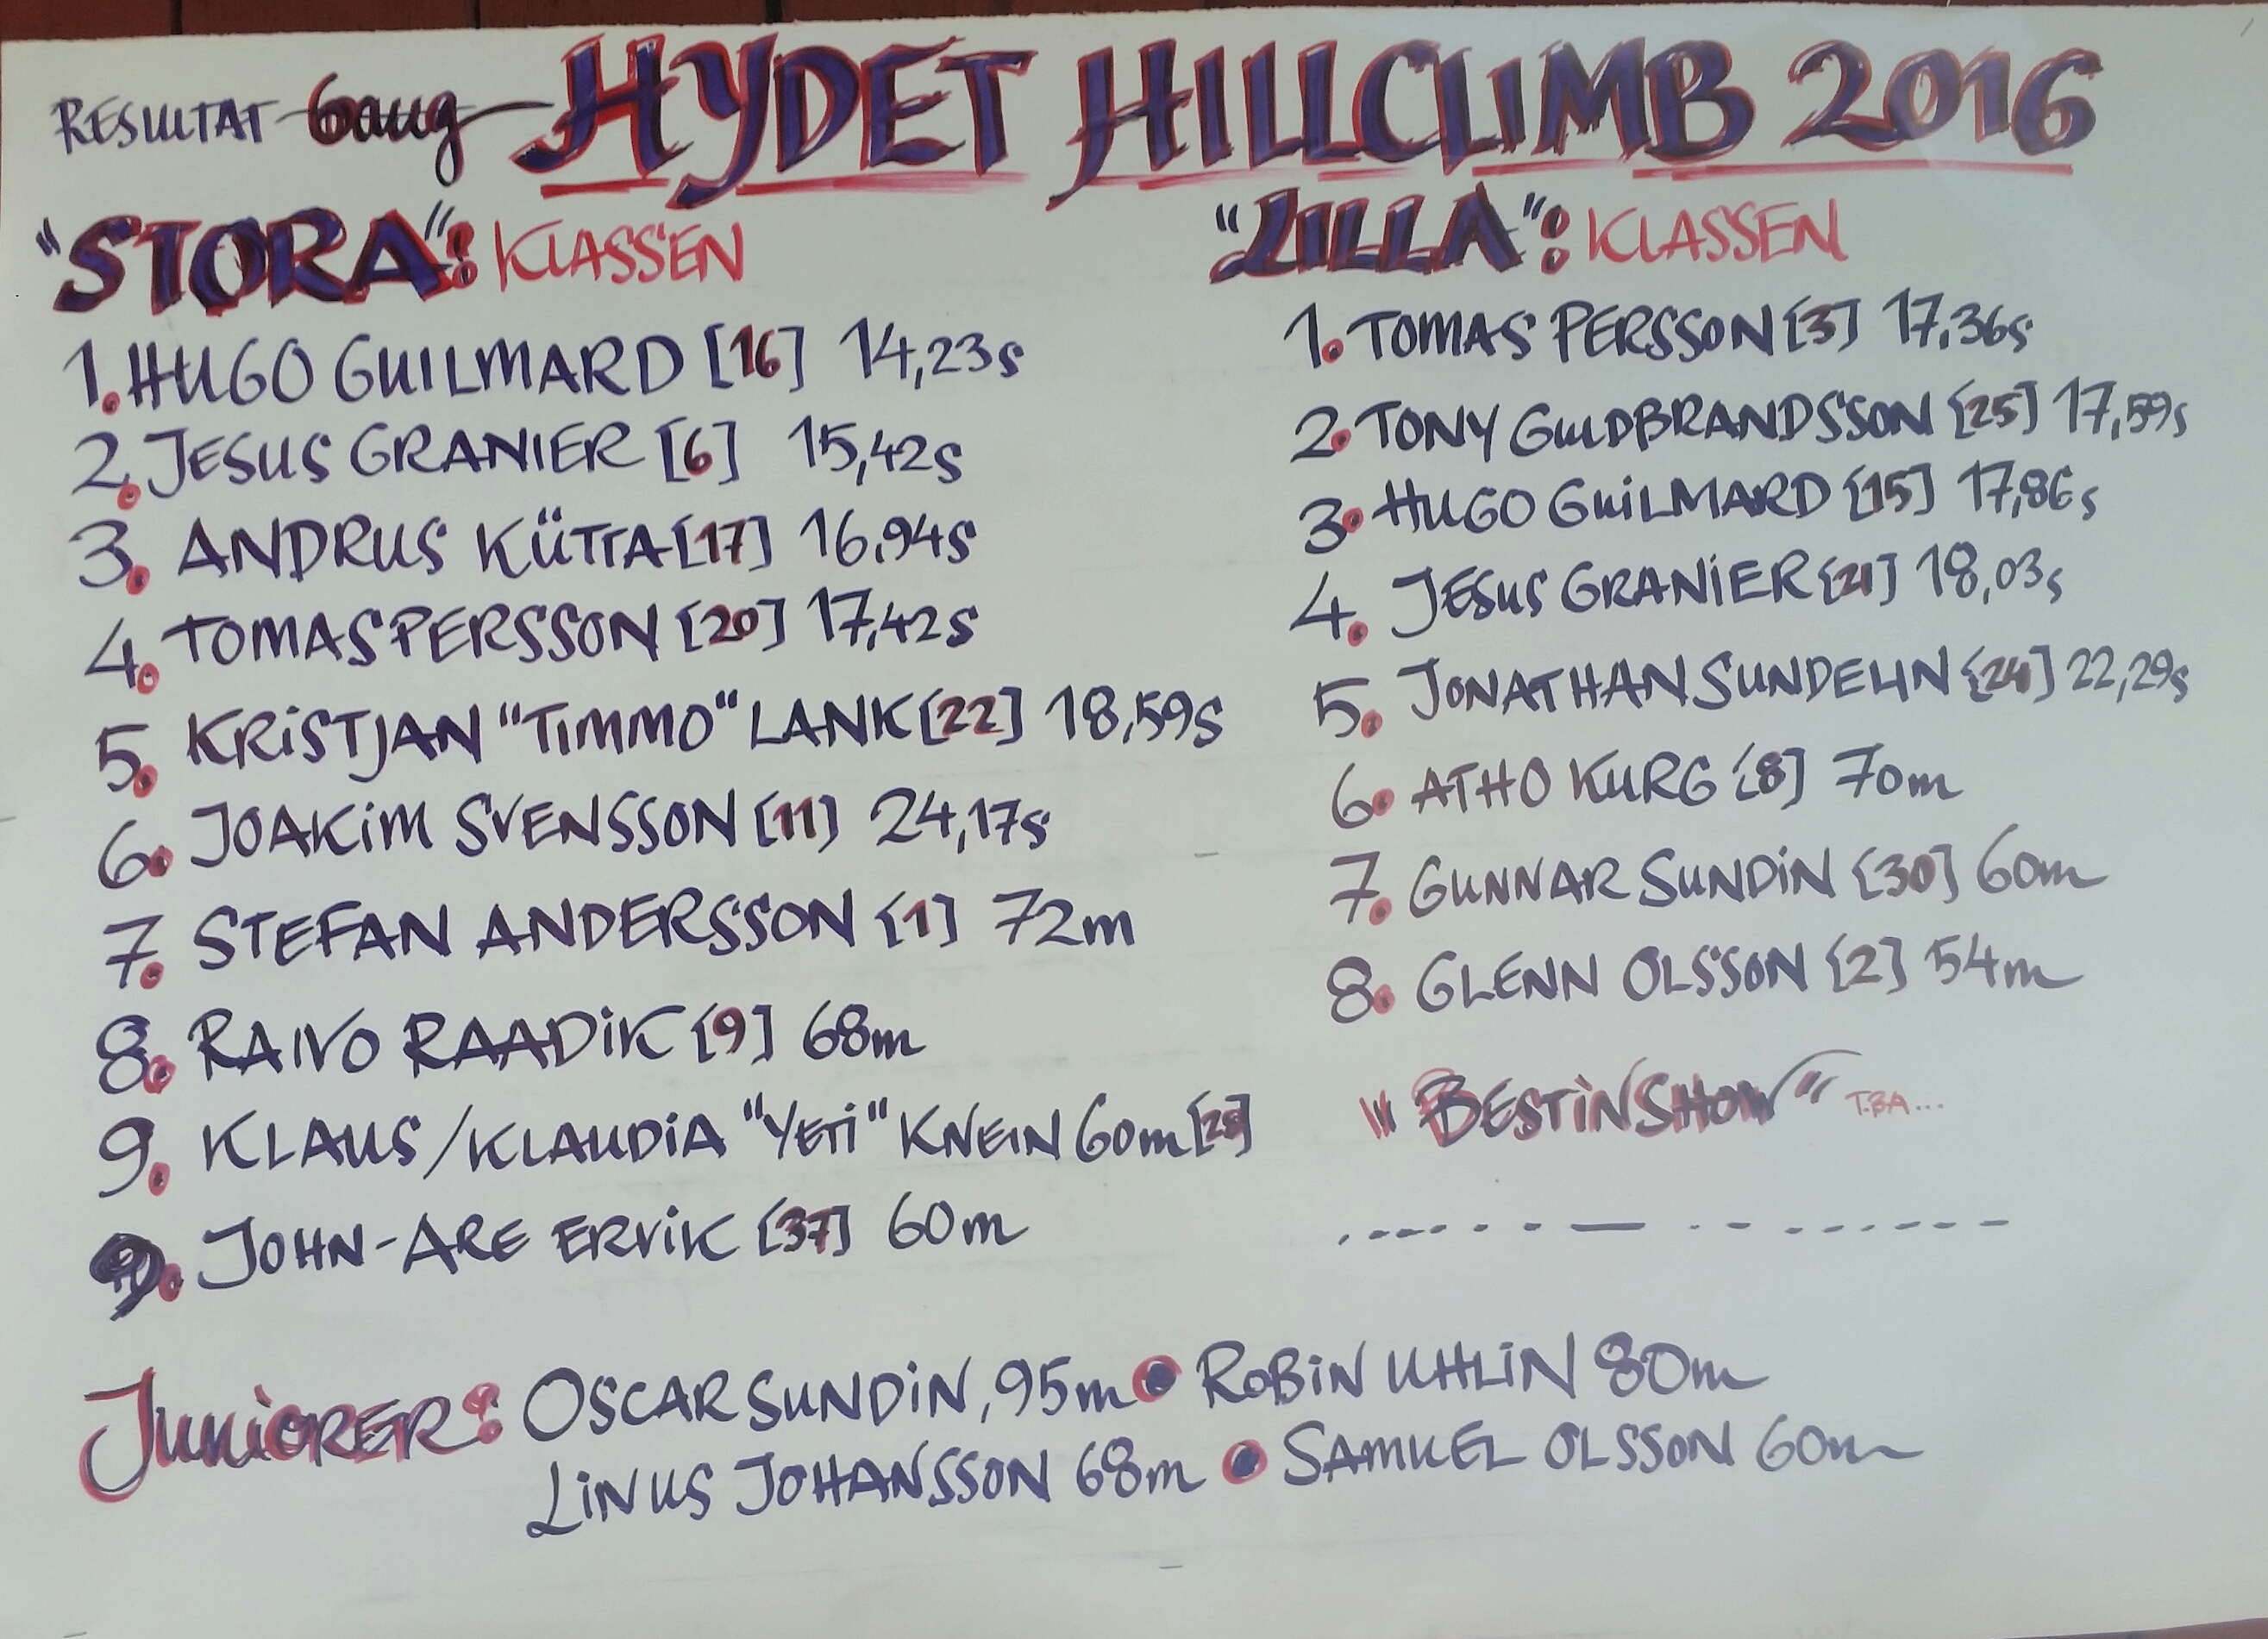 RESULTAT 6 aug HYDET HILLCLIMB 2016
"STORA": KLASSEN
1. HUGO GUILMARD [16] 14,23s
2. JESUS GRANIER [6] 15,42s
3. ANDRUS KÜTTA [17] 16,94s
4. TOMAS PERSSON [20] 17,42s
5. KRISTJAN "TIMMO" LANK [22] 18,59s
6. JOAKIM SVENSSON [11] 24,17s
7. STEFAN ANDERSSON [1] 72m
8. RAIVO RAADIK [9] 68m
9. KLAUS/KLAUDIA "YETI" KNEIN 60m [28]
9. JOHN-ARE ERVIK [37] 60m
"LILLA": KLASSEN
1. TOMAS PERSSON [3] 17,36s
2. TONY GULDBRANDSSON [25] 17,59s
3. HUGO GUILMARD [15] 17,86s
4. JESUS GRANIER [21] 18,03s
5. JONATHAN SUNDELIN [24] 22,29s
6. ATHO KURG [8] 70m
7. GUNNAR SUNDIN [30] 60m
8. GLENN OLSSON [2] 54m
"BEST IN SHOW" T.B.A...
JUNIORER: OSCAR SUNDIN, 95m • ROBIN UHLIN 80m
LINUS JOHANSSON 68m • SAMUEL OLSSON 60m